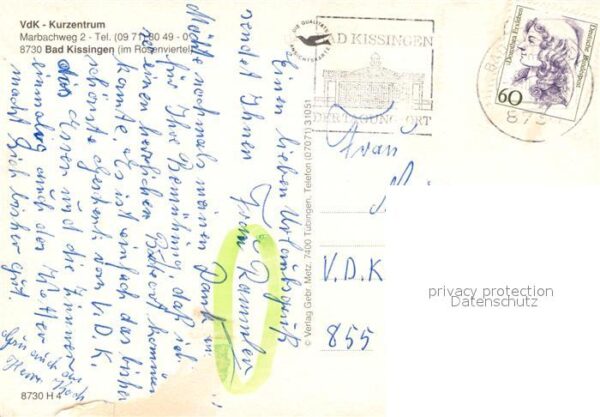 VdK - Kurzentrum
Marbachweg 2 - Tel. (09 71) 80 49 - 0
8730 Bad Kissingen (im Rosenviertel)
DIE QUALITÄTS
ANSICHTSKARTE
BAD KISSINGEN
DER TAGUNGSORT
Deutsche Bundespost
Dorothea Erxleben
60
BAD
873
Einen lieben Urlaubsgruß
sendet Ihnen
Möchte nochmals meinen Dank
für Ihre Bemühung, daß ich
in einen herrlichen Kurort kommen
konnte. Es ist einfach das bisher
schönste vom V.D.K.
das Essen und die Zimmer
einmalig auch das Wetter
macht sich bisher gut.
Gruß auch an
Herrn
© Verlag Gebr. Metz, 7400 Tübingen, Telefon (07071) 31051
Frau
V.D.K
855
privacy protection
Datenschutz
8730 H 4